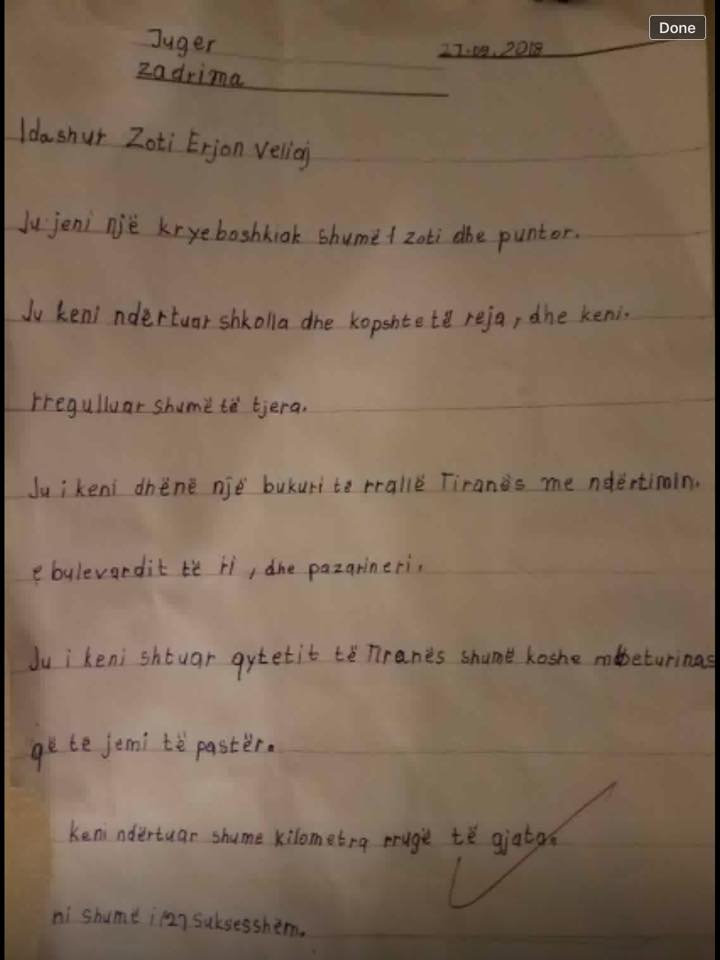 Done
Juger
27.09.2018
Zadrima
I dashur Zoti Erjon Veliaj
Ju jeni një kryebashkiak shumë i zoti dhe puntor.
Ju keni ndërtuar shkolla dhe kopshte të reja, dhe keni.
rregulluar shumë të tjera.
Ju i keni dhënë një bukuri te rrallë Tiranës me ndërtimin.
e bulevardit të ri, dhe pazarin e ri.
Ju i keni shtuar qytetit të Tiranës shumë koshe mbeturinas
që të jemi të pastër.
keni ndërtuar shume kilometra rrugë të gjata.
ni shumë i (2) suksesshëm.